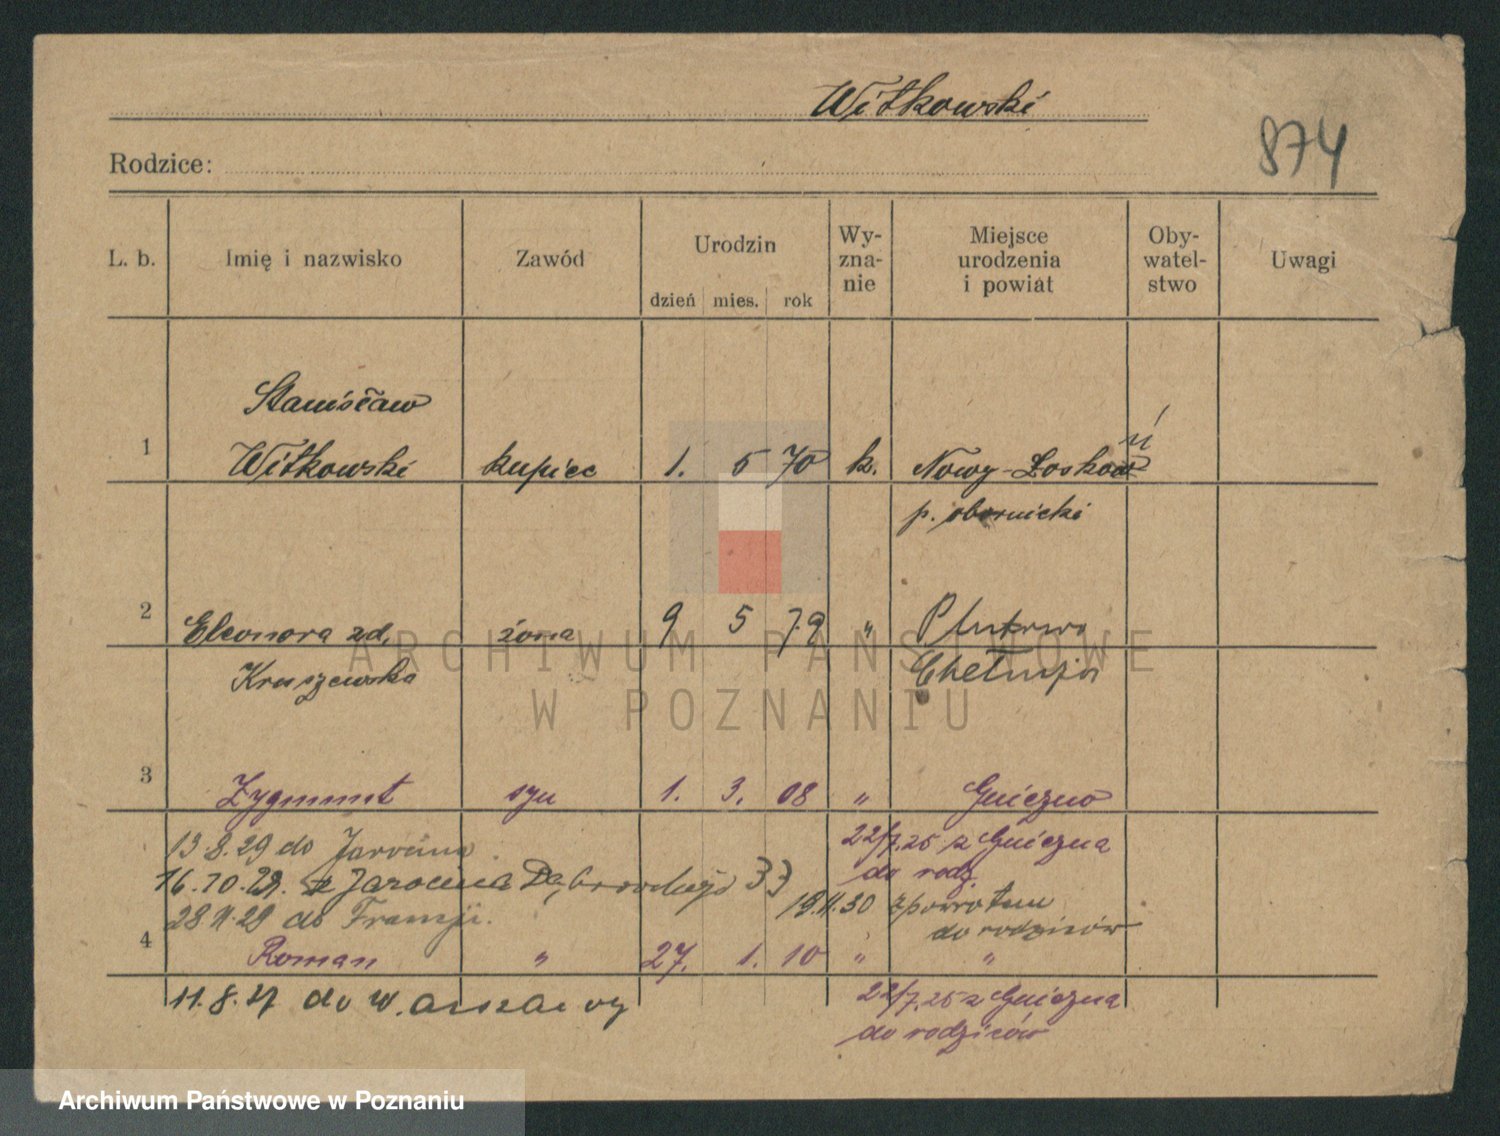 Witkowski
874
Rodzice:
L. b.
Imię i nazwisko
Zawód
Urodzin
dzień mies. rok
Wy-
zna-
nie
Miejsce
urodzenia
i powiat
Oby-
watel-
stwo
Uwagi
Stanisław
1 Witkowski kupiec 1. 5 70 k. Nowy-
p. obornicki
2 Eleonora zd. żona 9 5 79 "
Kruszewska
3 Zygmunt syn 1. 3. 08 " Gniezno
22/7.25 z Gniezna
do rodz.
13.8.29 do Jarocina
16.10.29. z Jarocina Dąbrowskiego 33
19.11.30 z powrotem
do rodziców
28.11.29 do Francji.
4 Roman " 27. 1. 10 " "
11.8.27 do Warszawy
22/7.25 z Gniezna
do rodziców
ARCHIWUM PAŃSTWOWE
W POZNANIU
Archiwum Państwowe w Poznaniu